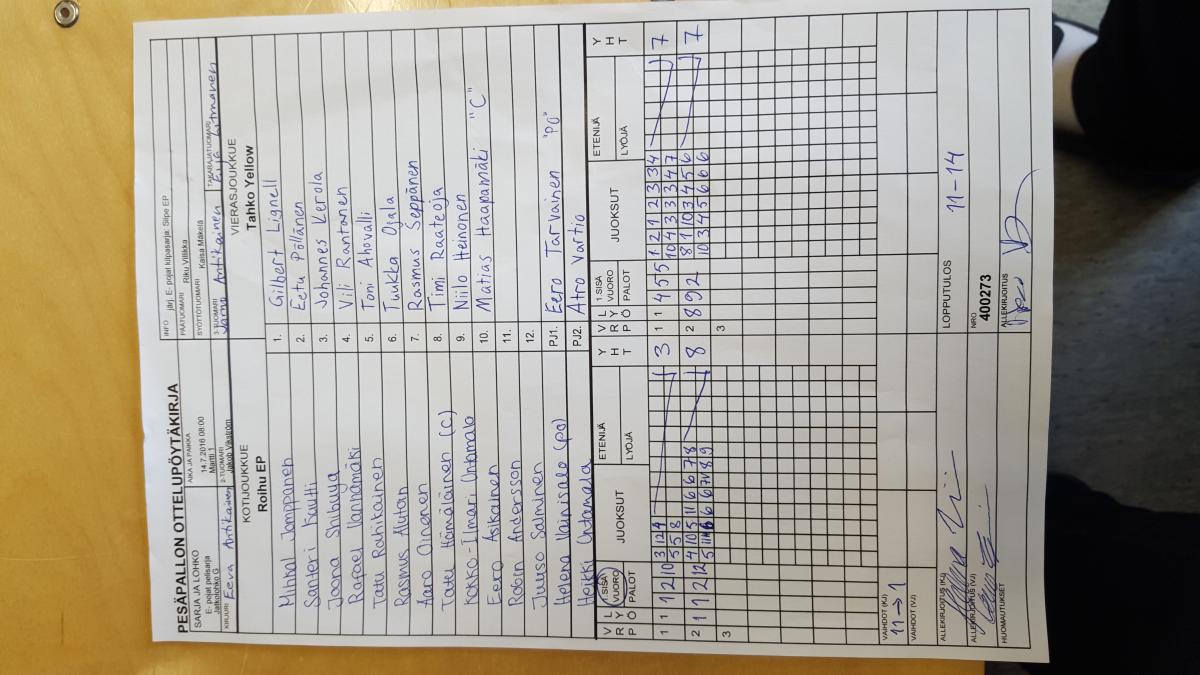 PESÄPALLON OTTELUPÖYTÄKIRJA
SARJA JA LOHKO
E- pojat pelisarja
Jatkolohko G
AIKA JA PAIKKA
14.7.2016 08:00
Martti 1
INFO järj. E- pojat kilpasarja: Siipe EP
PÄÄTUOMARI Riku Villikka
SYÖTTÖTUOMARI Kaisa Mäkelä
KIRJURI Eeva Antikainen
2-TUOMARI Jakob Vikström
3-TUOMARI Jarno Antikainen
TAKARAJATUOMARI Eija
KOTIJOUKKUE
Roihu EP
VIERASJOUKKUE
Tahko Yellow
Mihkal Jomppanen 1. Gilbert Lignell
Santeri Kultti 2. Eetu Pöllänen
Joona Shibuya 3. Johannes Kerola
Rafael Vanhamäki 4. Vili Rantanen
Tatu Rahikainen 5. Toni Ahovalli
Rasmus 6. Tuukka Ojala
Aaro Oinonen 7. Rasmus Seppänen
Tatu Hämäläinen (C) 8. Timi Raateoja
Kokko-Ilmari Untamala 9. Niilo Heinonen
Eero Asikainen 10. Matias Haapamäki "C"
Robin Andersson 11.
Juuso Salminen 12.
Helena Vainisalo (po) PJ1. Eero Tarvainen "PO"
Heikki Untamala PJ2. Atro Vartio
VRP LYÖ 1.SISÄ VUORO PALOT JUOKSUT ETENIJÄ LYÖJÄ YHT
VRP LYÖ 1.SISÄ VUORO PALOT JUOKSUT ETENIJÄ LYÖJÄ YHT
1 1 12 10 3 12 4 3
5 5 8
1 1 4 5 5 1 2 1 2 3 3 4 7
10 4 3 3 3 4 7
2 1 1 2 12 4 10 5 11 6 6 7 8 8
2 8 9 2 8 1 10 3 4 5 6 7
10 3 4 5 6 6 6
3
3
VAIHDOT (KJ)
11 → 1
VAIHDOT (VJ)
LOPPUTULOS
11-14
ALLEKIRJOITUS (KJ)
ALLEKIRJOITUS (VJ)
NRO
400273
HUOMAUTUKSET
ALLEKIRJOITUS